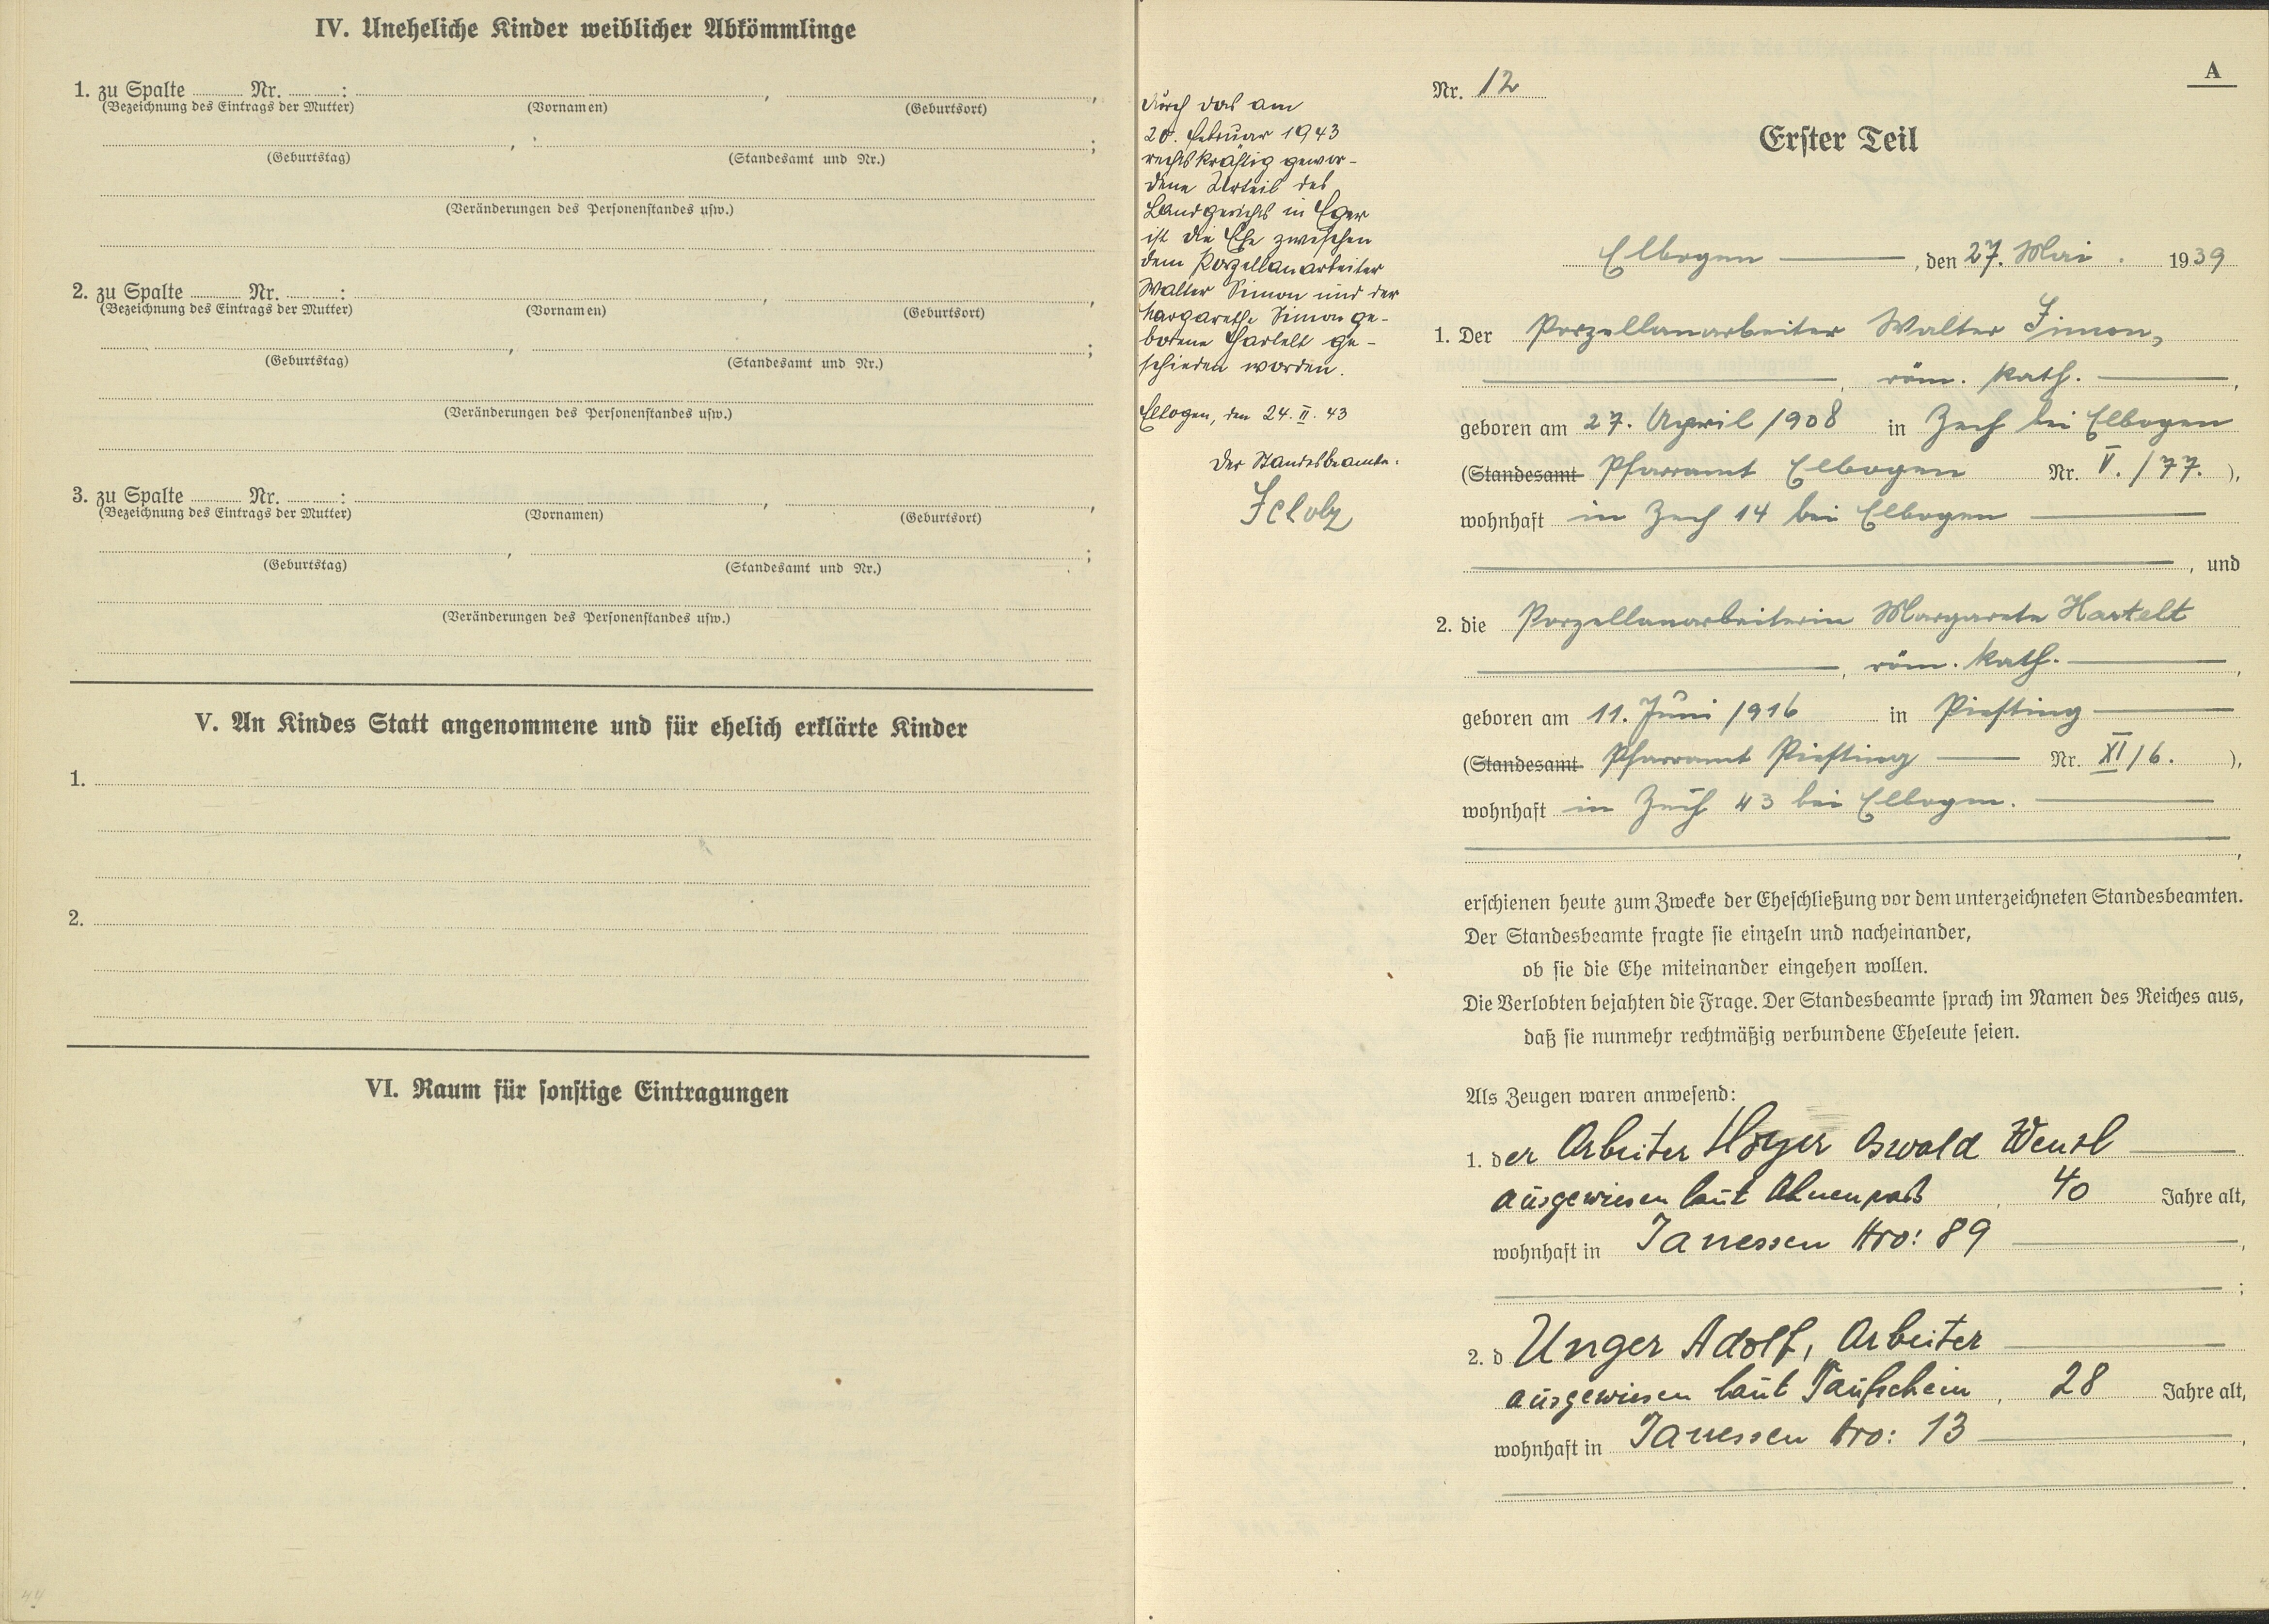 IV. Uneheliche Kinder weiblicher Abkömmlinge
1. zu Spalte ........ Nr. ........ : , ,
(Bezeichnung des Eintrags der Mutter) (Vornamen) (Geburtsort)
, ;
(Geburtstag) (Standesamt und Nr.)
(Veränderungen des Personenstandes usw.)
2. zu Spalte ........ Nr. ........ : , ,
(Bezeichnung des Eintrags der Mutter) (Vornamen) (Geburtsort)
, ;
(Geburtstag) (Standesamt und Nr.)
(Veränderungen des Personenstandes usw.)
3. zu Spalte ........ Nr. ........ : , ,
(Bezeichnung des Eintrags der Mutter) (Vornamen) (Geburtsort)
, ;
(Geburtstag) (Standesamt und Nr.)
(Veränderungen des Personenstandes usw.)
V. An Kindes Statt angenommene und für ehelich erklärte Kinder
1.
2.
VI. Raum für sonstige Eintragungen
Durch das am
20. Februar 1943
rechtskräftig gewor-
dene Urteil des
Landgerichts in Eger
ist die Ehe zwischen
dem Porzellanarbeiter
Walter Simon und der
Margarethe Simon ge-
borene Hartelt ge-
schieden worden.
Elbogen, den 24. II. 43
Der Standesbeamte:
A
Nr. 12
Erster Teil
Elbogen , den 27. Mai . 1939
1. Der Porzellanarbeiter Walter Simon,
, röm. kath. ,
geboren am 27. April 1908 in Zech bei Elbogen
(Standesamt Pfarramt Elbogen Nr. V. / 77. ),
wohnhaft in Zech 14 bei Elbogen
, und
2. die Porzellanarbeiterin Margarete Hartelt
, röm. kath. ,
geboren am 11. Juni 1916 in Piesting
(Standesamt Pfarramt Piesting Nr. XI / 6. ),
wohnhaft in Zech 43 bei Elbogen.
,
erschienen heute zum Zwecke der Eheschließung vor dem unterzeichneten Standesbeamten.
Der Standesbeamte fragte sie einzeln und nacheinander,
ob sie die Ehe miteinander eingehen wollen.
Die Verlobten bejahten die Frage. Der Standesbeamte sprach im Namen des Reiches aus,
daß sie nunmehr rechtmäßig verbundene Eheleute seien.
Als Zeugen waren anwesend:
1. der Arbeiter Hoyer Oswald Wenzl
ausgewiesen laut Ahnenpaß , 40 Jahre alt,
wohnhaft in Janessen Nro: 89 ,
;
2. d Unger Adolf, Arbeiter
ausgewiesen laut Taufschein , 28 Jahre alt,
wohnhaft in Janessen Nro: 13 ,
.